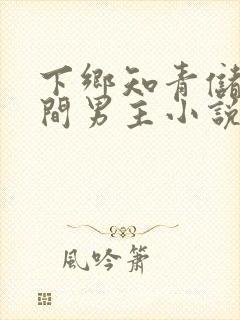 下鄉知青儲
間男主小說
風吟簫